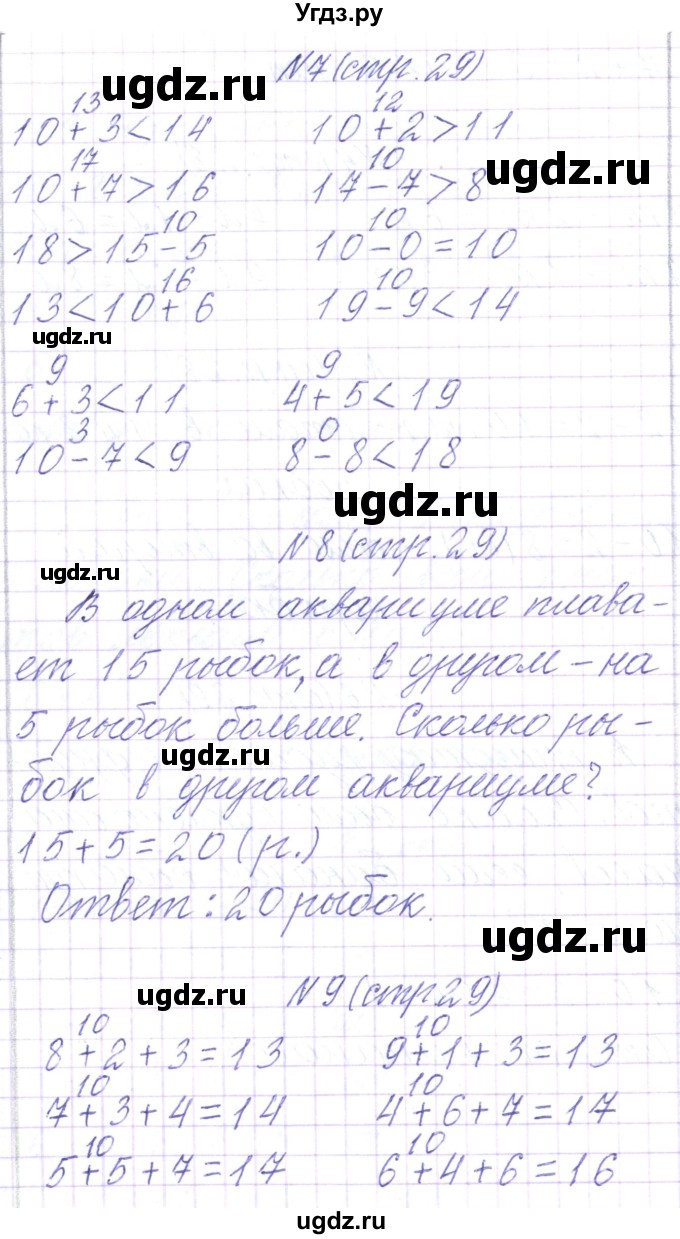 Угдз.ру
N7 (стр. 29)
13 12
10 + 3 < 14 10 + 2 > 11
17 10
10 + 7 > 16 17 - 7 > 8
10 10
18 > 15 - 5 10 - 0 = 10
16 10
13 < 10 + 6 19 - 9 < 14
9 9
6 + 3 < 11 4 + 5 < 19
3 0
10 - 7 < 9 8 - 8 < 18
N 8 (стр. 29)
В одном аквариуме плава-
ет 15 рыбок, а в другом - на
5 рыбок больше. Сколько ры-
бок в другом аквариуме?
15 + 5 = 20 (р.)
Ответ: 20 рыбок.
N 9 (стр 29)
10 10
8 + 2 + 3 = 13 9 + 1 + 3 = 13
10 10
7 + 3 + 4 = 14 4 + 6 + 7 = 17
10 10
5 + 5 + 7 = 17 6 + 4 + 6 = 16
ugdz.ru
ugdz.ru
ugdz.ru
ugdz.ru
ugdz.ru
ugdz.ru
ugdz.ru
ugdz.ru
ugdz.ru